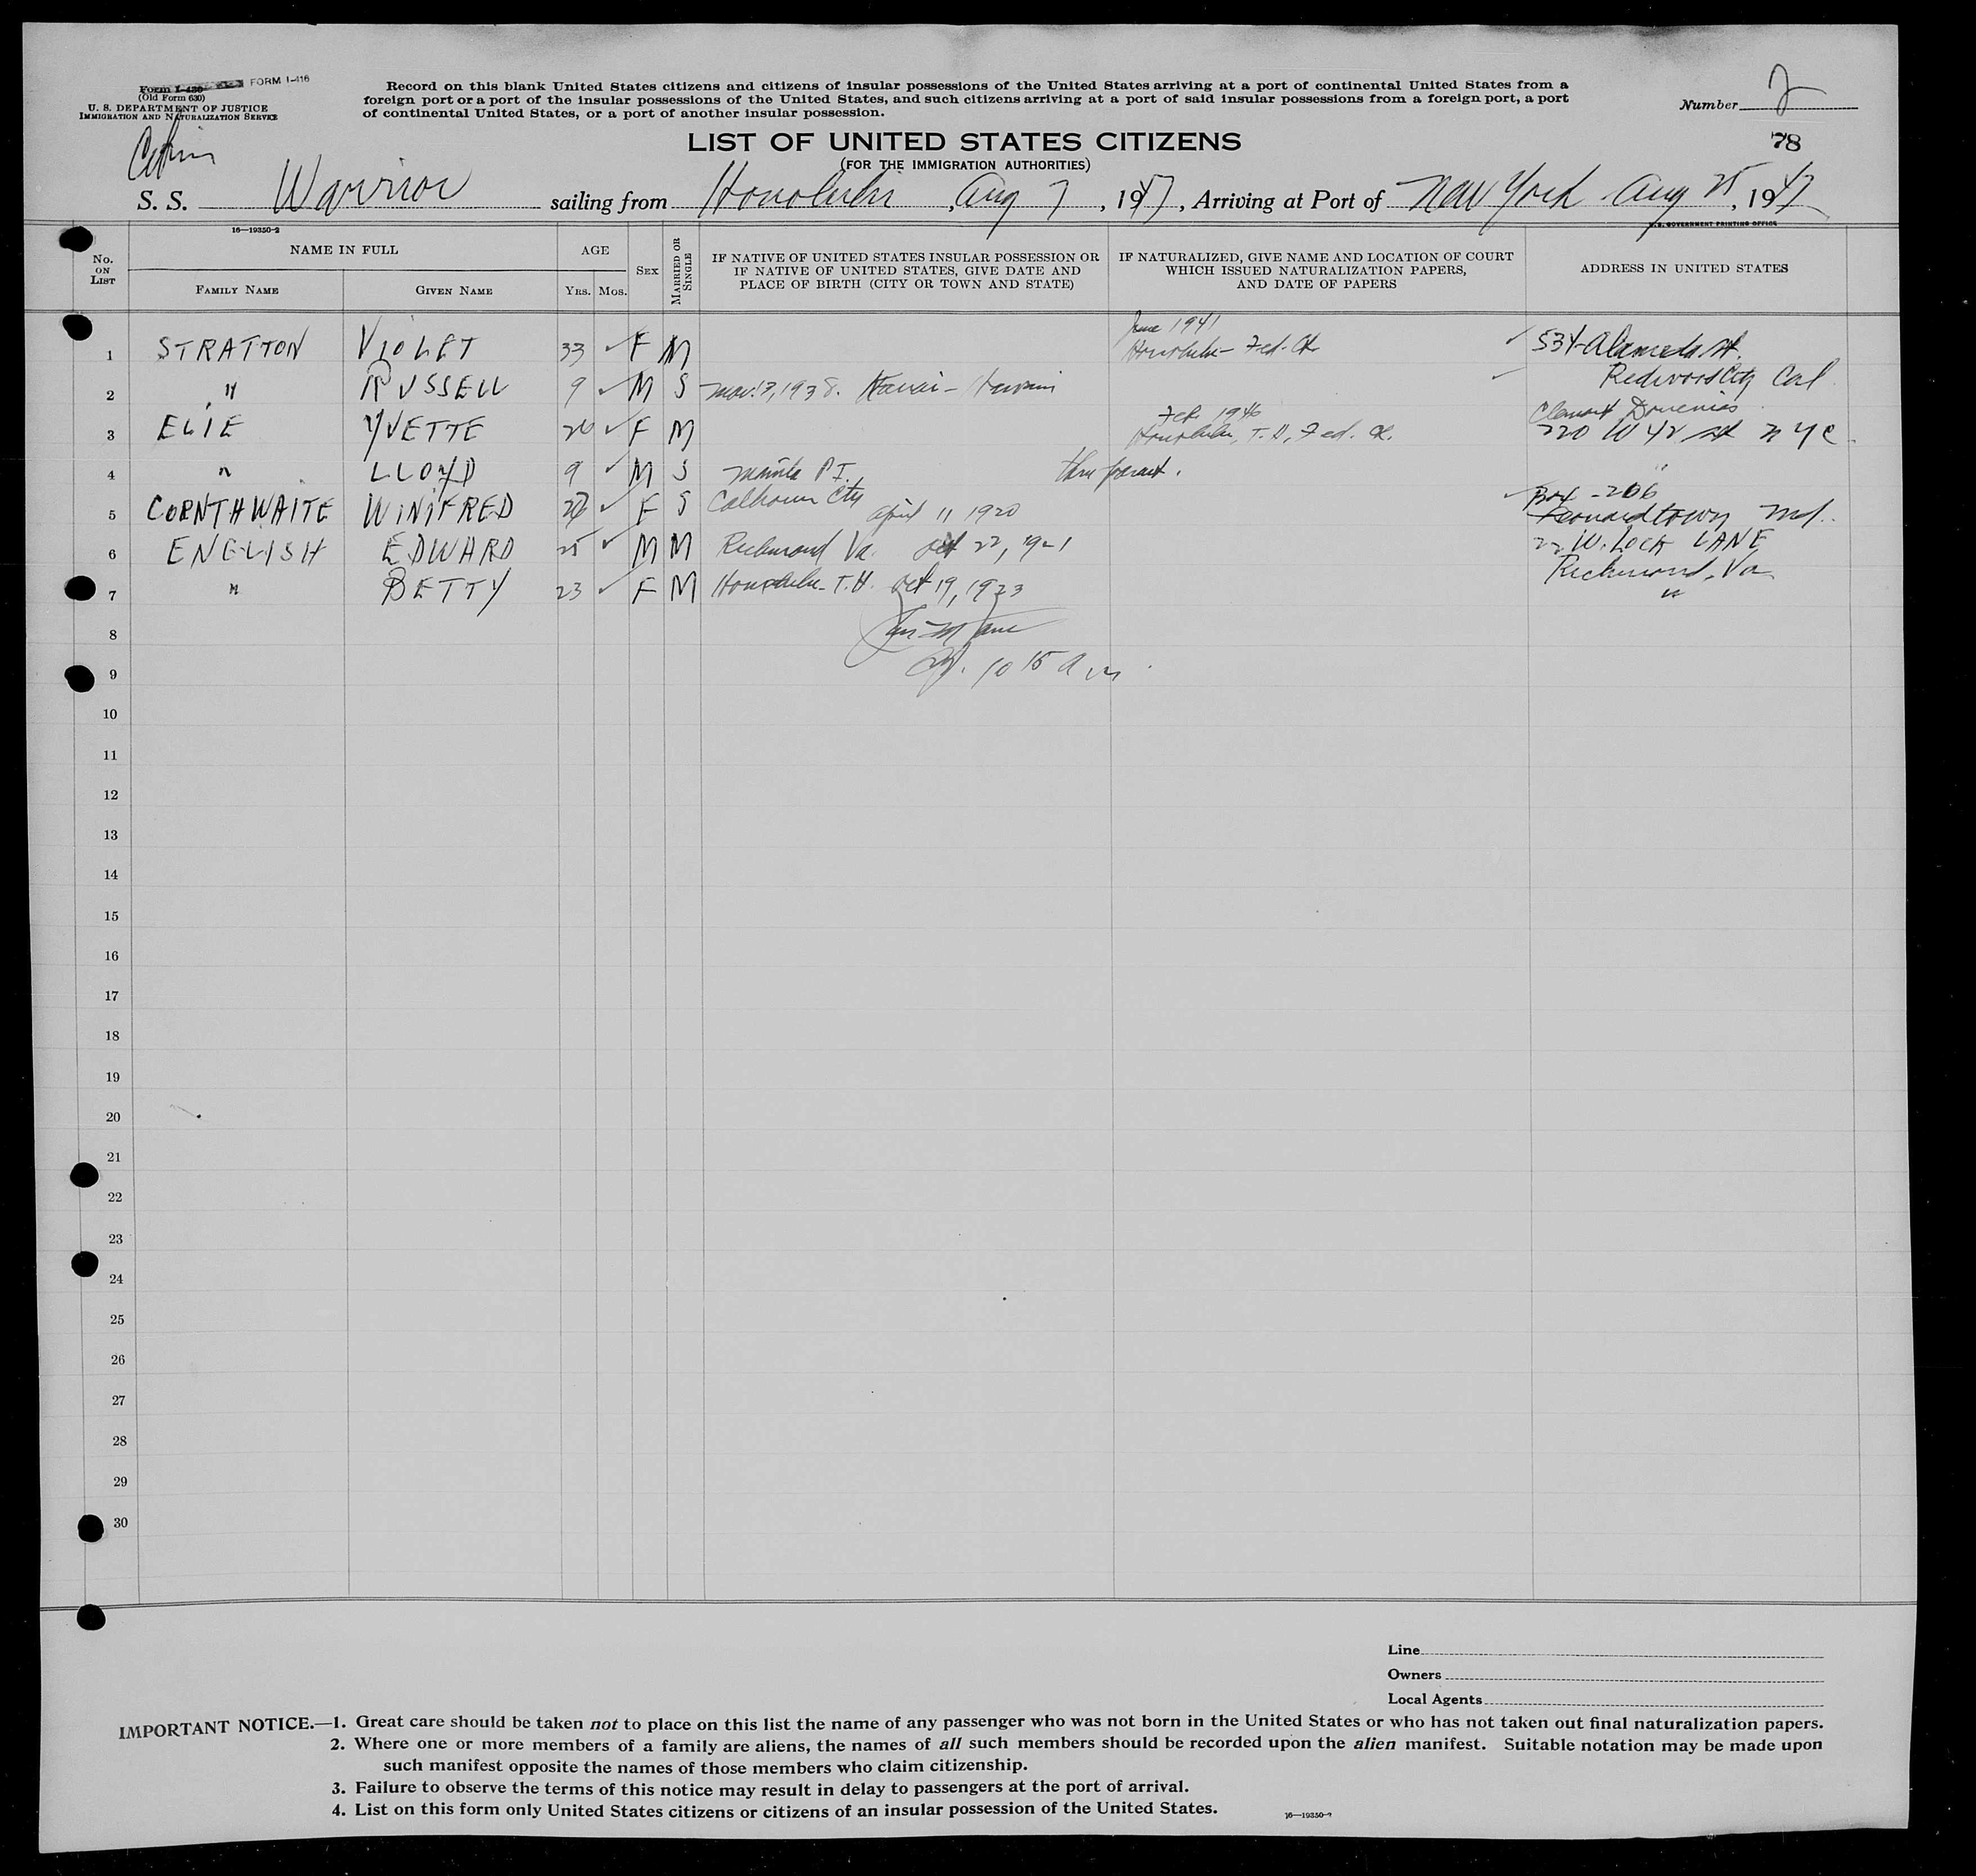 Form I-430 FORM I-416
(Old Form 630)
U. S. DEPARTMENT OF JUSTICE
IMMIGRATION AND NATURALIZATION SERVICE
Record on this blank United States citizens and citizens of insular possessions of the United States arriving at a port of continental United States from a
foreign port or a port of the insular possessions of the United States, and such citizens arriving at a port of said insular possessions from a foreign port, a port
of continental United States, or a port of another insular possession.
Number 2
78
LIST OF UNITED STATES CITIZENS
(FOR THE IMMIGRATION AUTHORITIES)
S. S. Warrior sailing from Honolulu, Aug 7, 1947, Arriving at Port of New York Aug 25, 1947
U. S. GOVERNMENT PRINTING OFFICE
16—19350-2
No. ON LIST
NAME IN FULL
FAMILY NAME
GIVEN NAME
AGE
YRS.
MOS.
SEX
MARRIED OR SINGLE
IF NATIVE OF UNITED STATES INSULAR POSSESSION OR
IF NATIVE OF UNITED STATES, GIVE DATE AND
PLACE OF BIRTH (CITY OR TOWN AND STATE)
IF NATURALIZED, GIVE NAME AND LOCATION OF COURT
WHICH ISSUED NATURALIZATION PAPERS,
AND DATE OF PAPERS
ADDRESS IN UNITED STATES
June 1941
1 STRATTON VIOLET 33 ✓ F M Honolulu - Fed. Ct. ✓ 534 Alameda St.
2 " RUSSELL 9 ✓ M S Nov. 7, 1938. Kauai - Hawaii ✓ Redwood City Cal
Feb. 1946
3 ELIE YVETTE 26 ✓ F M Honolulu, T.H., Fed. Ct. 220 W 42 St N Y C
4 " LLOYD 9 ✓ M S Manila P.I. thru parent. "
Box - 206
5 CORNTHWAITE WINIFRED 27 ✓ F S Calhoun City April 11 1920 ✓ Leonardtown Md.
6 ENGLISH EDWARD 25 ✓ M M Richmond Va. Oct 22, 1921 22 W. LOCK LANE
Richmond, Va
7 " BETTY 23 ✓ F M Honolulu - T.H. Oct 19, 1923 "
8
10 15 a m
9
10
11
12
13
14
15
16
17
18
19
20
21
22
23
24
25
26
27
28
29
30
Line
Owners
Local Agents
IMPORTANT NOTICE.—1. Great care should be taken not to place on this list the name of any passenger who was not born in the United States or who has not taken out final naturalization papers.
2. Where one or more members of a family are aliens, the names of all such members should be recorded upon the alien manifest. Suitable notation may be made upon
such manifest opposite the names of those members who claim citizenship.
3. Failure to observe the terms of this notice may result in delay to passengers at the port of arrival.
4. List on this form only United States citizens or citizens of an insular possession of the United States.
16—19350-2